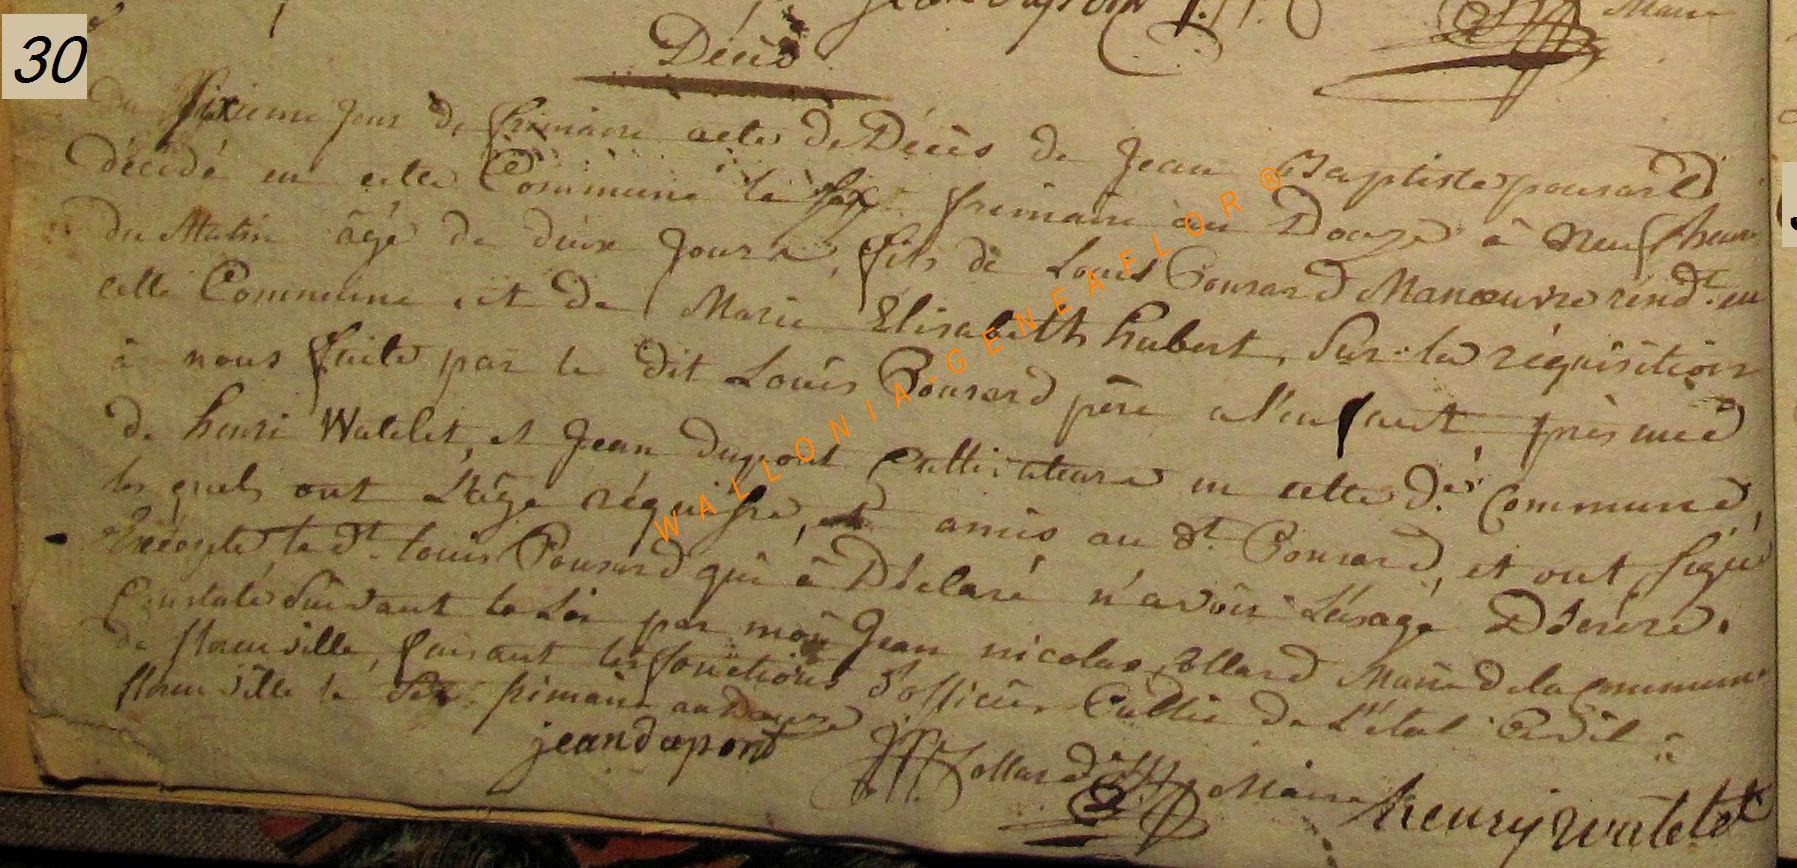 30
Décès
du Sixieme jour de frimaire acte de Décès de Jean Baptiste ponsard
décédé en cette Commune le six frimaire an Douze à neuf heures
du Matin âgé de deux jours, fils de Louis Ponsard Manœuvre résidt. en
cette Commune, et de Marie Elisabeth hubert, Sur la réquisition
à nous faite par le dit Louis Ponsard père a l'enfant, présence
de henri Watelet, et Jean Dupont Cultivateurs en cette de. Commune,
les quels ont L'âge réquisse, et amis au dt. Ponsard, et ont signé
Excepté le dt. Louis Ponsard qui à Déclaré n'avoir L'usage D'écrire.
Constaté Suivant la Loi par moi Jean nicolas Collard Maire de la Commune
de florenville, faisant les fonctions d'officier Public de L'état Civil à
florenville le Six frimaire an Douze
jean dupont
JN Collard Maire
henry watelet
WALLONIA-GENEAFLOR ®